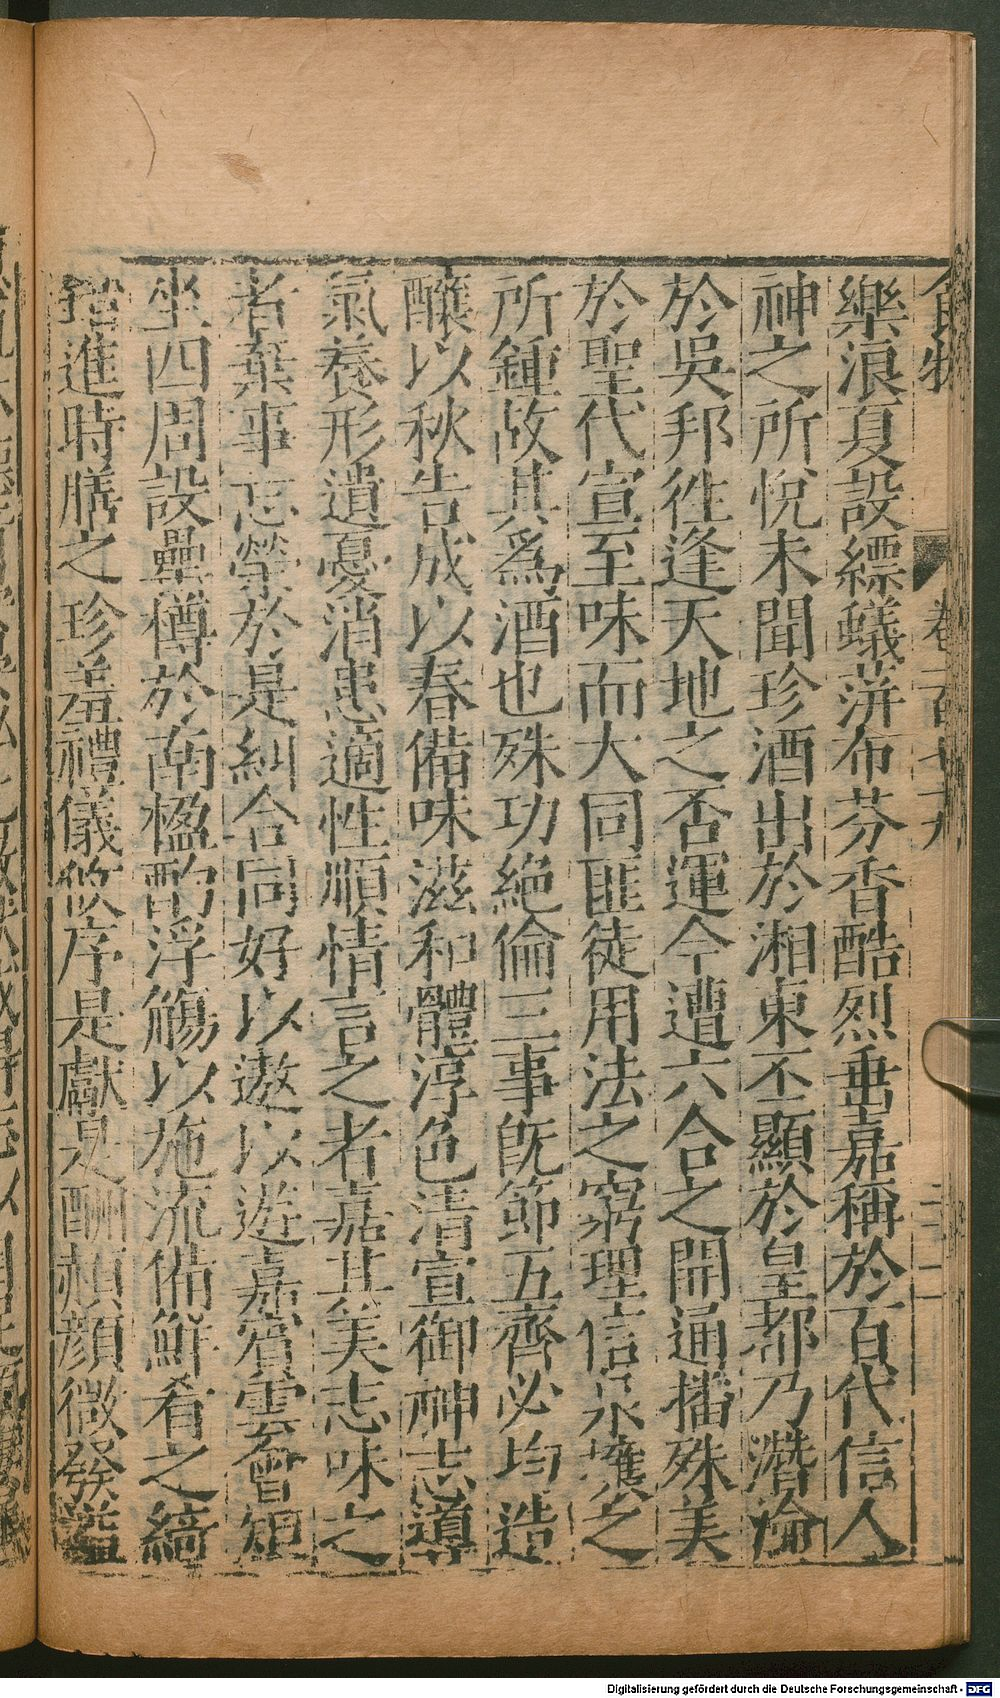 食物
卷二百七十九
二十二
樂浪夏設縹蟻蓱布芬香酷烈垂嘉稱於百代信人
神之所悅未聞珍酒出於湘東不顯於皇都乃潛淪
於吳邦徃逢天地之否運今遭六合之開通播殊美
於聖代宣至味而大同匪徒用法之窮理信泉壤之
所鍾故其爲酒也殊功絕倫三事旣節五齊必均造
釀以秋告成以春備味滋和體淳色清宣御神志導
氣養形遺憂消患適性順情言之者嘉其美志味之
者棄事忘榮於是糾合同好以遨以遊嘉賓雲會矩
坐四周設罍樽於南楹酌浮觴以施流備鮮肴之綺
錯進時膳之珍羞禮儀攸序是獻是酬赬顏微發溢
Digitalisierung gefördert durch die Deutsche Forschungsgemeinschaft - DFG